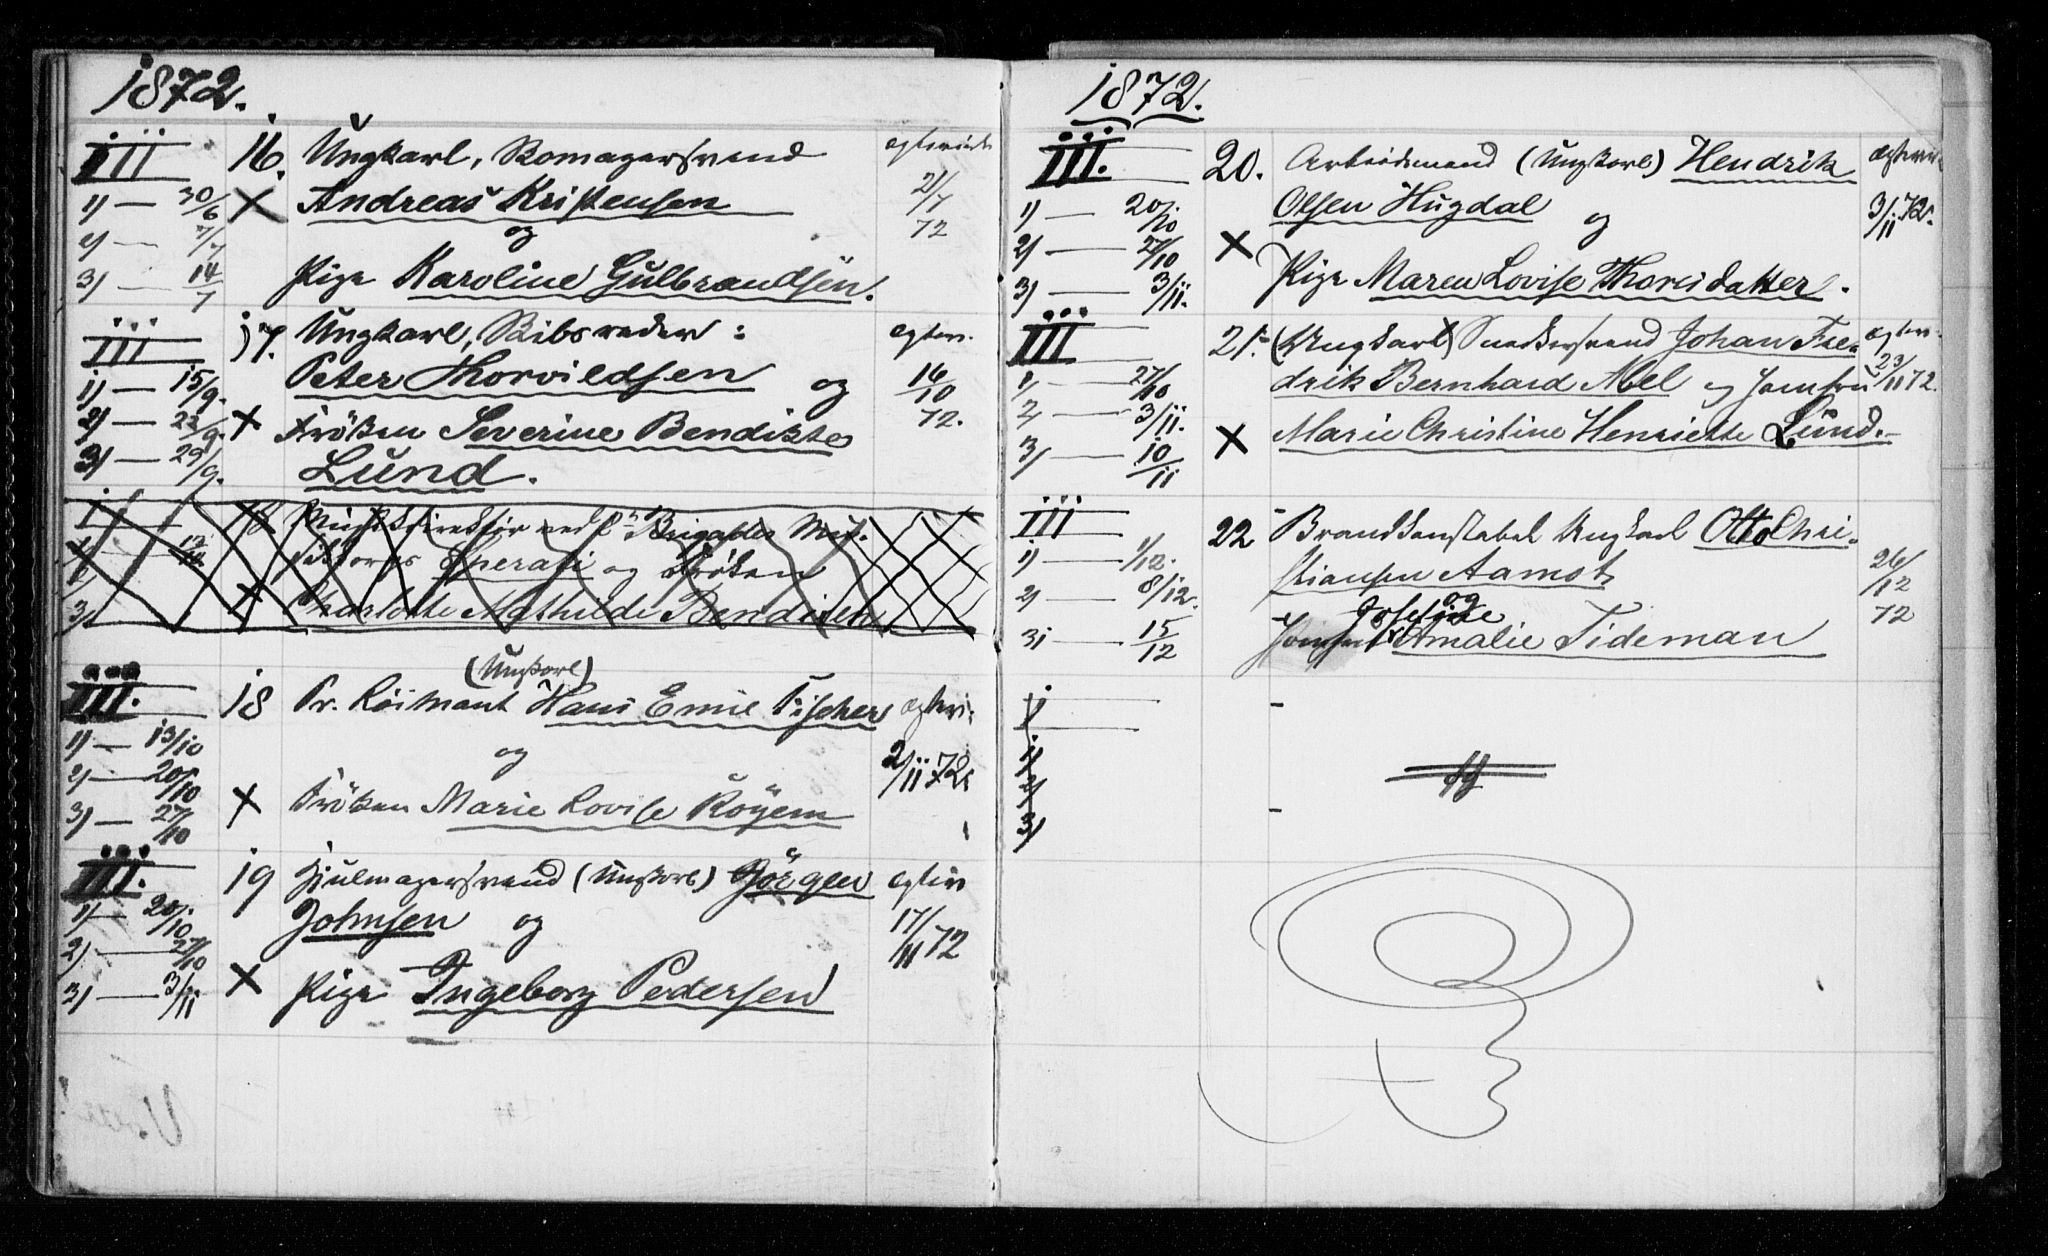 1872.
III
1) — 30/6
2) — 7/7
3) — 14/7
16. Ungkarl, Skomagersvend
Andreas Kristensen
og
Pige Karoline Gulbrandsen.
egteviet
21/7
72
III
1) — 15/9.
2) — 22/9.
3) — 29/9.
17. Ungkarl, Skibsreder:
Peter Thorvildsen og
Fröken Severine Bendikte
Lund.
egtev.
16/10
72.
Musikdirektör ved Brigades Mu-
Sperati og Fröken
Charlotte Mathilde Bendixen
III.
1) — 13/10
2) — 20/10
3) — 27/10
(Ungkarl)
18 Pr. Löitnant Hans Emil Fischer
og
Fröken Marie Lovise Röyem
egtevi.
2/11 72.
III.
1) — 20/10
2) — 27/10
3) — 3/11
19 Hjulmagersvend (Ungkarl) Görgen
Johnsen og
Pige Ingeborg Pedersen
egtev
17/11 72
1872.
III.
1) — 20/10
2) — 27/10
3) — 3/11.
20. Arbeidsmand (Ungkarl) Hendrik
Olsen Hugdal og
Pige Maren Lovise Thoresdatter.
3/11 72.
III
1) — 27/10
2) — 3/11.
3) — 10/11
21. (Ungkarl) Snedkersvend Johan Fre-
drik Bernhard Abel og Jomfru
Marie Christine Henriette Lund.
egtev.
23/11 72.
III
1) — 1/12.
2) — 8/12.
3) — 15/12
22 Brandkonstabel Ungkarl Otto Chri-
stiansen Aamot
og
Josefine
Jomfru Amalie Tideman
26/12
72
1)
2)
3)